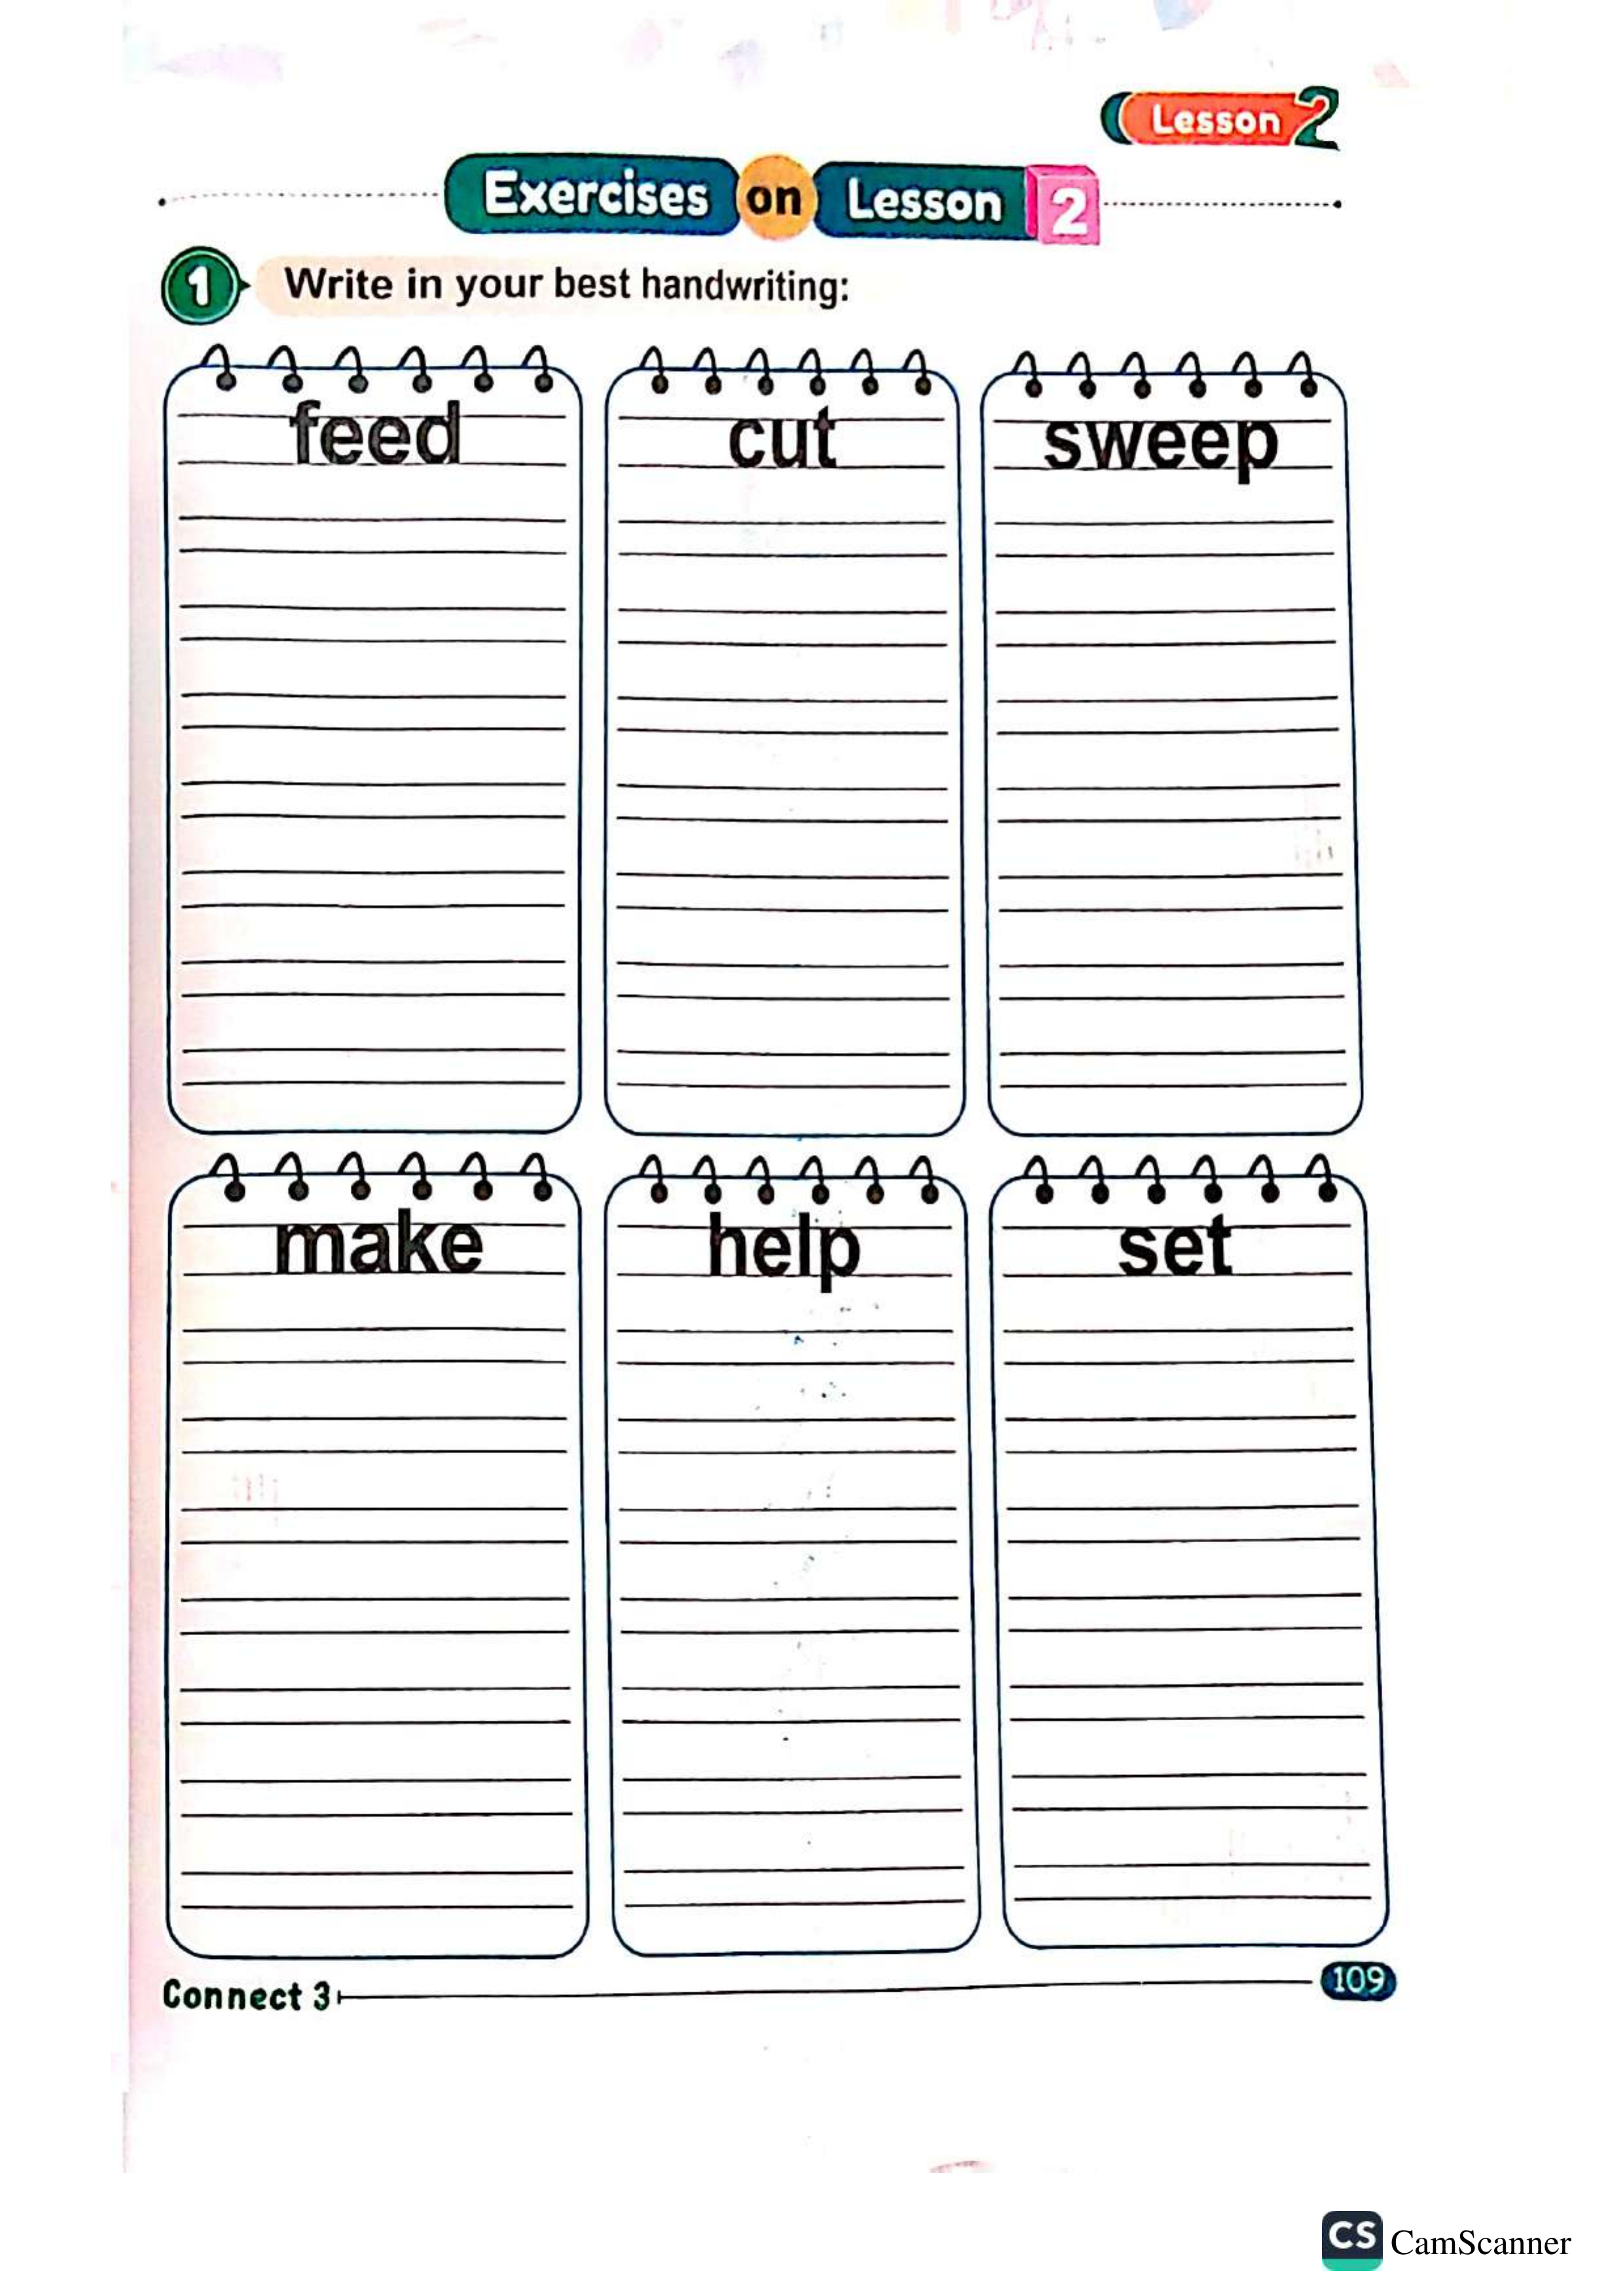 Lesson 2
Exercises on Lesson 2
1 Write in your best handwriting:
feed cut sweep
make help set
Connect 3 109
CS CamScanner